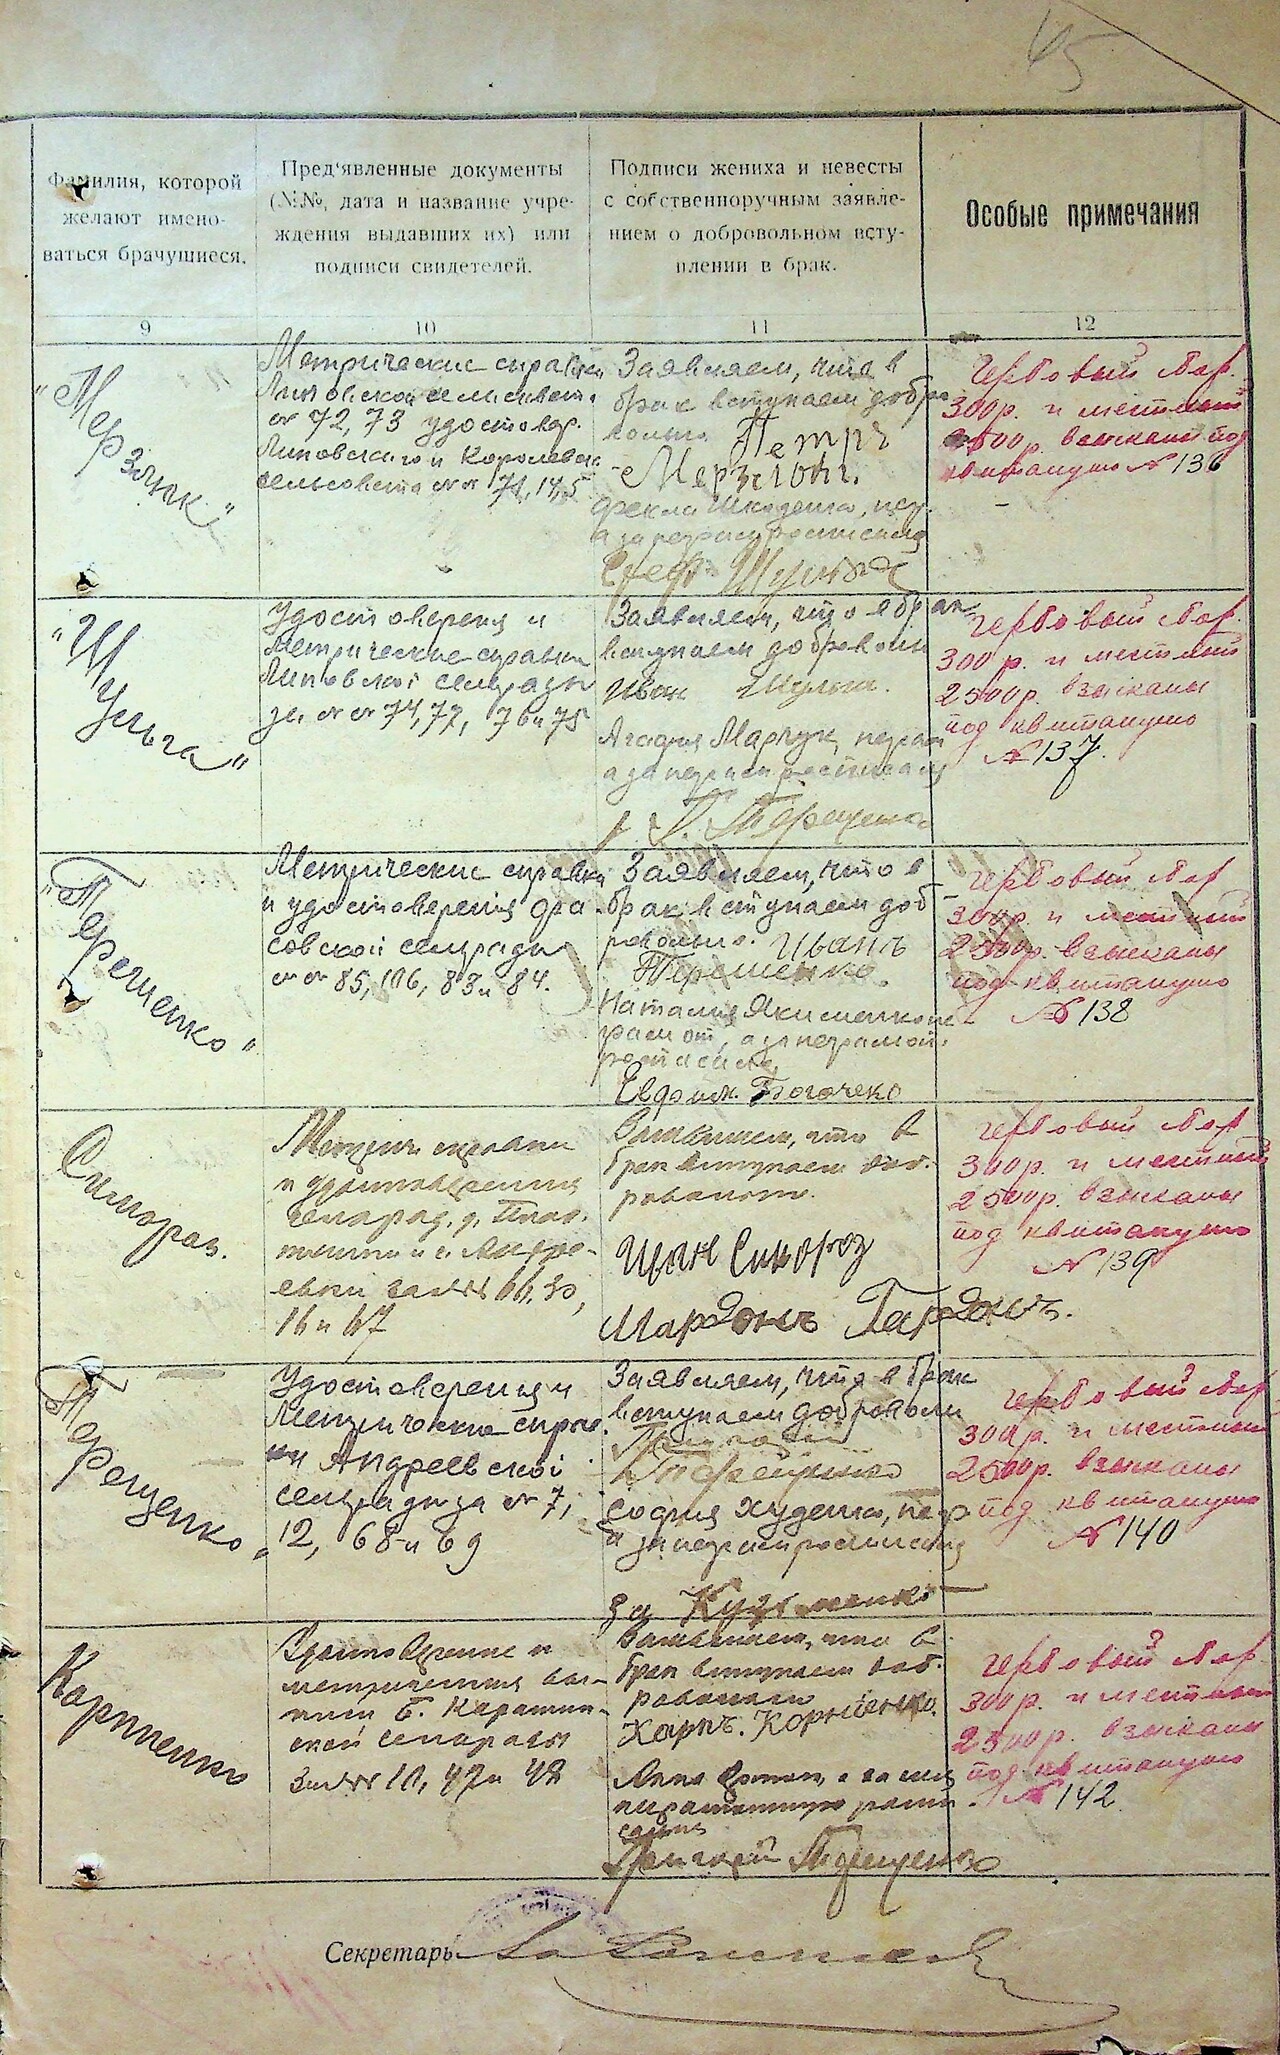 45
Фамилия, которой
желают имено-
ваться брачущиеся.
Пред'явленные документы
(№№, дата и название учре-
ждения выдавших их) или
подписи свидетелей.
Подписи жениха и невесты
с собственноручным заявле-
нием о добровольном всту-
плении в брак.
Особые примечания
9
10
11
12
"Мерзлюк"
Метрические справки
№ 72, 73 удостовер.
Липовского и Королевск
сельсовета №№ 71, 145
Заявляем, что в
брак вступаем добро
вольно. Петръ
Мерзлюк.
Фекла
а за неграм расписался
Гербовый сбор.
300р. и местный
2500р. взысканы под
квитанцию № 136
"Шульга"
Удостоверения и
метрические справки
Липовской сельрады
за №№ 74, 77, 76 и 75
Заявляем, что в брак
вступаем добровольно
Иван Шульга.
Агафия Марчук, неграм
а за неграм расписался
Терещенко
Гербовый сбор
300 р. и местный
2500р. взысканы
под квитанцию
№ 137.
"Терещенко"
Метрические справки
и удостоверения
совской сельрады
№№ 85, 106, 83 и 84.
Заявляем, что в
брак вступаем доб
ровольно. Иванъ
Терещенко.
Наталия Якименко не
грамот, а за неграмот.
расписался
Евдоким. Богаченко
Гербовый сбор
300р. и местный
2500р. взысканы
под квитанцию
№ 138
Сикораз.
Метрич справки
и удостоверения
сельрад. д.
и с. Андре-
евки за №№ 66, 30,
16 и 67
Заявляем, что в
брак вступаем доб-
ровольно.
Иван Сикороз
Гербовый сбор
300р. и местный
2500р. взысканы
под квитанцию
№ 139
"Терещенко"
Удостоверения и
метрические справ
ки Андреевской
сельрады за № 7,
12, 68 и 69
Заявляем, что в брак
вступаем добровольн
Терещенко
София Худенко, негр
а за неграм расписался
за Кузьменко
Гербовый сбор
300р. и местный
2500р. взысканы
под квитанцию
№ 140
Корниенко
Удостоверение и
метрическая вы-
писи Б. Каратин-
ской сельрады
за №№ 10, 47 и 48
Заявляем, что в
брак вступаем доб-
ровольно
Харпъ. Корниенко.
Анна а за нея
неграмотную распи
сался
Григорий Терещенко
Гербовый сбор
300р. и местный
2500р. взысканы
под квитанцию
№ 142
Секретарь